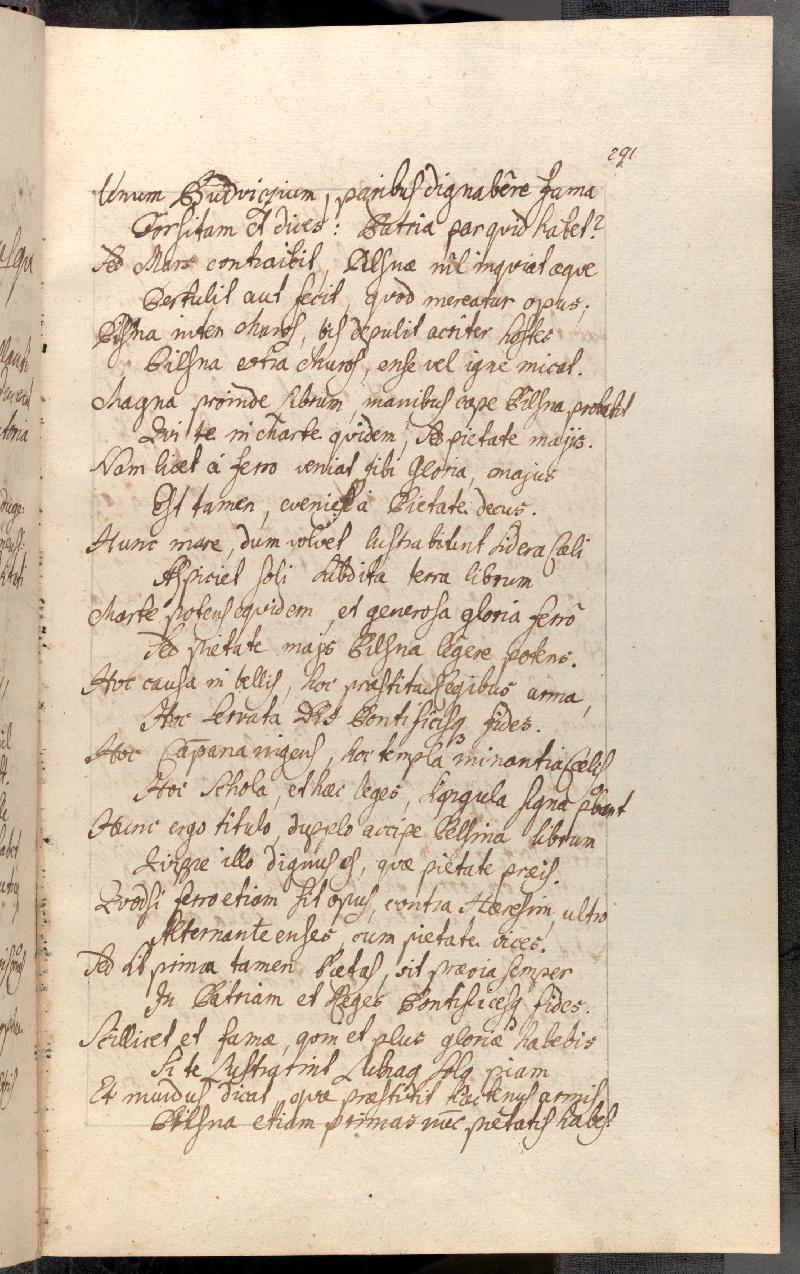 291
Unum Budvicium, paribus dignabêre fama
Forsitam et dices: Patria par quid habet?
Sed Mars contraibit, Pilsnæ nil inquiet æque
Pertulit aut fecit, quod mereatur opus;
Pilsna inter muros, bis depulit acriter hostes
Pilsna extra muros, ense vel igne micat.
Magna proinde librum, manibus cape Pilsna probabit
Qui te in charte quidem, sed pietate majis.
Nam licet á ferro veniat tibi Gloria, majus
Est tamen, eveniet á Pietate decus.
Hunc mare, dum volvet lustrabitunt sidera Cæli
Aspiciet soli subdita terra librum
Marte potens equidem, et generosa gloria ferro
Sed pietate majis Pilsna legere potens.
Hoc causa in bellis, hoc præstita legibus arma,
Hoc servata DEO Pontificisq fides.
Hoc Cāpana vigens, hoc templa minantia Cælis
Hoc Schola, et hæc leges, singula signa pbant
Hunc ergo titulo, dupplo accipe Pilsna librum
Jureque illo dignus es, quæ pietate præis.
Quodsi ferro etiam sit opus, contra Hæresim, ultro
Alternante enses, cum pietate vices.
Sed sit prima tamen Pietas, sit prævia semper
In Patriam et Reges Pontificesq fides.
Scillicet et famæ, qom et plus gloriæ habebis
Si te lustrarint Lunaq Solq piam
Et mundus dicat, quæ præstitit hactenus armis
Pilsna etiam primas nūc pietatis habes!